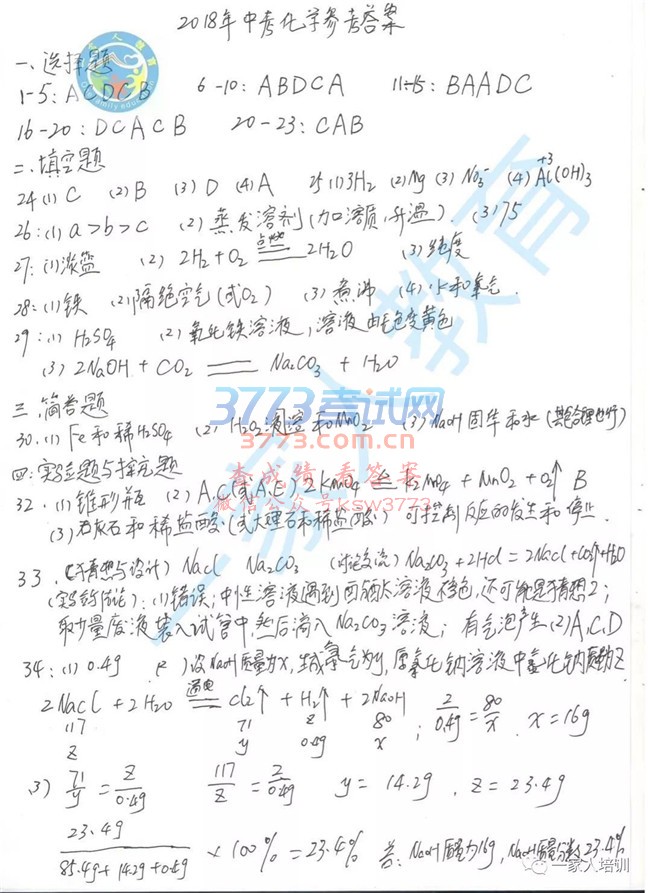 2018年中考化学参考答案
一、选择题
1-5: ACDCB 6-10: ABDCA 11-15: BAADC
16-20: DCACB 20-23: CAB
二、填空题
24(1) C (2) B (3) D (4) A 25(1) 3H₂ (2) Mg (3) NO₃⁻ (4) +3 Al(OH)₃
26:(1) a>b>c (2) 蒸发溶剂(加溶质,升温). (3) 75
27:(1) 淡蓝 (2) 2H₂+O₂ 点燃 ═ 2H₂O (3) 纯度
28:(1) 铁 (2) 隔绝空气(或O₂) (3) 煮沸 (4) 水和氧气.
29:(1) H₂SO₄ (2) 氧化铁溶液,溶液由无色变黄色
(3) 2NaOH + CO₂ ═ Na₂CO₃ + H₂O
3773考试网
三.简答题
30.(1) Fe和稀H₂SO₄ (2) H₂O₂溶液和MnO₂ (3) NaOH固体和水(其它合理也行)
3773.com.cn
四:实验题与探究题
查成绩看答案
32.(1) 锥形瓶 (2) A,C(或A,E) 2KMnO₄ ═ K₂MnO₄ + MnO₂ + O₂↑ B
微信公众号ksw3773
(3) 石灰石和稀盐酸(或大理石和稀盐酸) 可控制反应的发生和停止.
33.(猜想与设计) NaCl Na₂CO₃ (讨论交流) Na₂CO₃+2HCl=2NaCl+CO₂↑+H₂O
(实验结论):(1)错误;中性溶液遇到酚酞溶液褪色,还可能是猜想2;
取少量废液装入试管中,然后滴入Na₂CO₃溶液;有气泡产生(2)A,C,D
34:(1) 0.4g 设NaOH质量为x,生成氯气为y,原氯化钠溶液中氯化钠质量为z
2NaCl + 2H₂O 通电 ═ Cl₂↑ + H₂↑ + 2NaOH
117 71 2 80 ; 2/0.4g = 80/x . x = 16g
z y 0.4g x
(3) 71/y = 2/0.4g 117/z = 2/0.4g y = 14.2g . z = 23.4g
23.4g/(85.4g+14.2g+0.4g) × 100% = 23.4% 答:NaOH质量为16g,NaOH质量分数23.4%
一家人培训
一家人教育